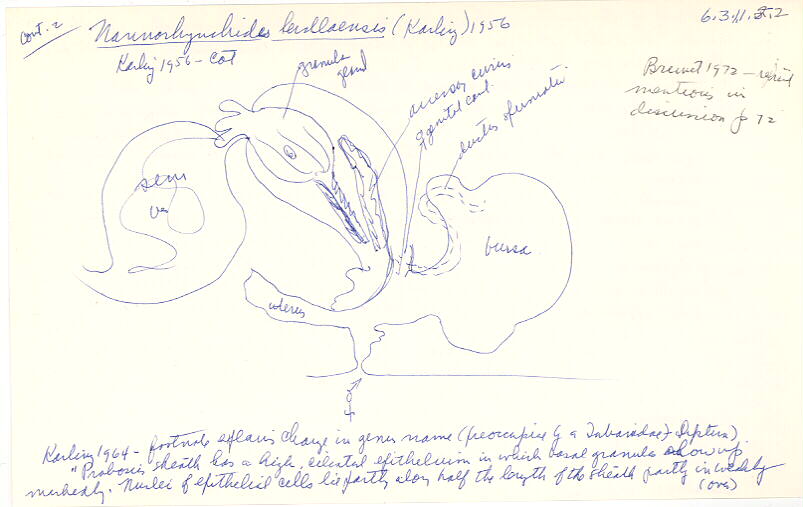 cont. 2
Nannorhynchides herdlaensis (Karling) 1956
6.3.11.2.2
Karling 1956 - Cat
Brunet 1972 - reprint
mentions in
discussion p 72
granula
gland
accessory cirrus
genital cont.
ductus spermatic
sem
ves
bursa
uterus
♂
♀
Karling 1964 - footnote explains change in genus name (preoccupied by a Tabanidae - Diptera).
"Proboscis sheath has a high, ciliated epithelium in which basal granula show up
markedly. Nuclei of epithelial cells lie partly along half the length of the sheath partly in weakly
(over)